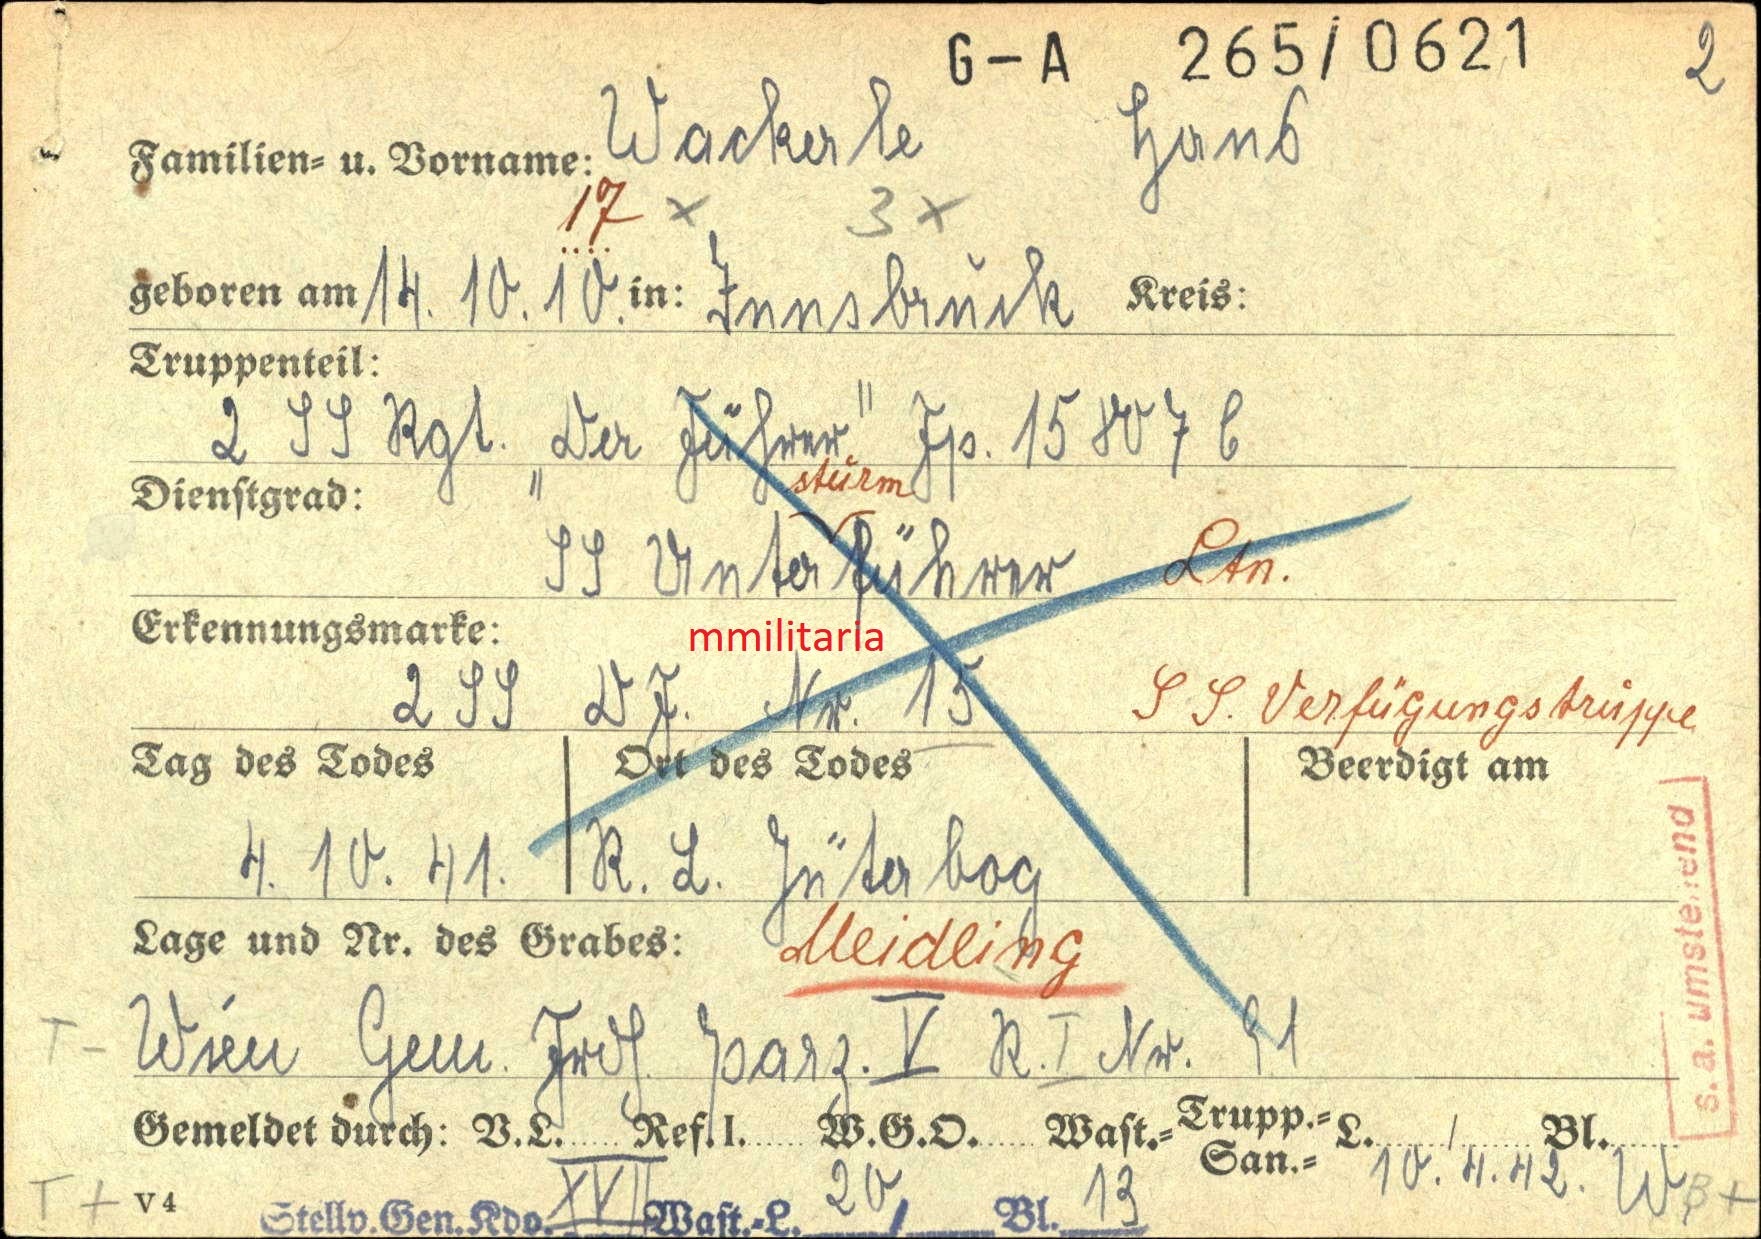 G-A 265/0621 2
Familien- u. Vorname: Wackerle Hans
17 x 3 x
geboren am 14. 10. 10. in: Innsbruck Kreis:
Truppenteil:
2 SS Rgt. "Der Führer" Fp. 15807 C
Dienstgrad:
sturm
SS Unterführer Ltn.
Erkennungsmarke:
mmilitaria
2 SS D.F. Nr. 15 SS. Verfügungstruppe
Tag des Todes Ort des Todes Beerdigt am
4. 10. 41. R. L. Jüterbog
Lage und Nr. des Grabes: Meidling
T - Wien Gem. Frdf. parz. V R. I Nr. 91
s. a. umstehend
Gemeldet durch: V.L. Ref. I. W.G.O. Wast.- Trupp.- San.- L. / Bl.
10. 4. 42. W
T + V 4
Stellv. Gen. Kdo. XVII Wast.-L. 20 / Bl. 13